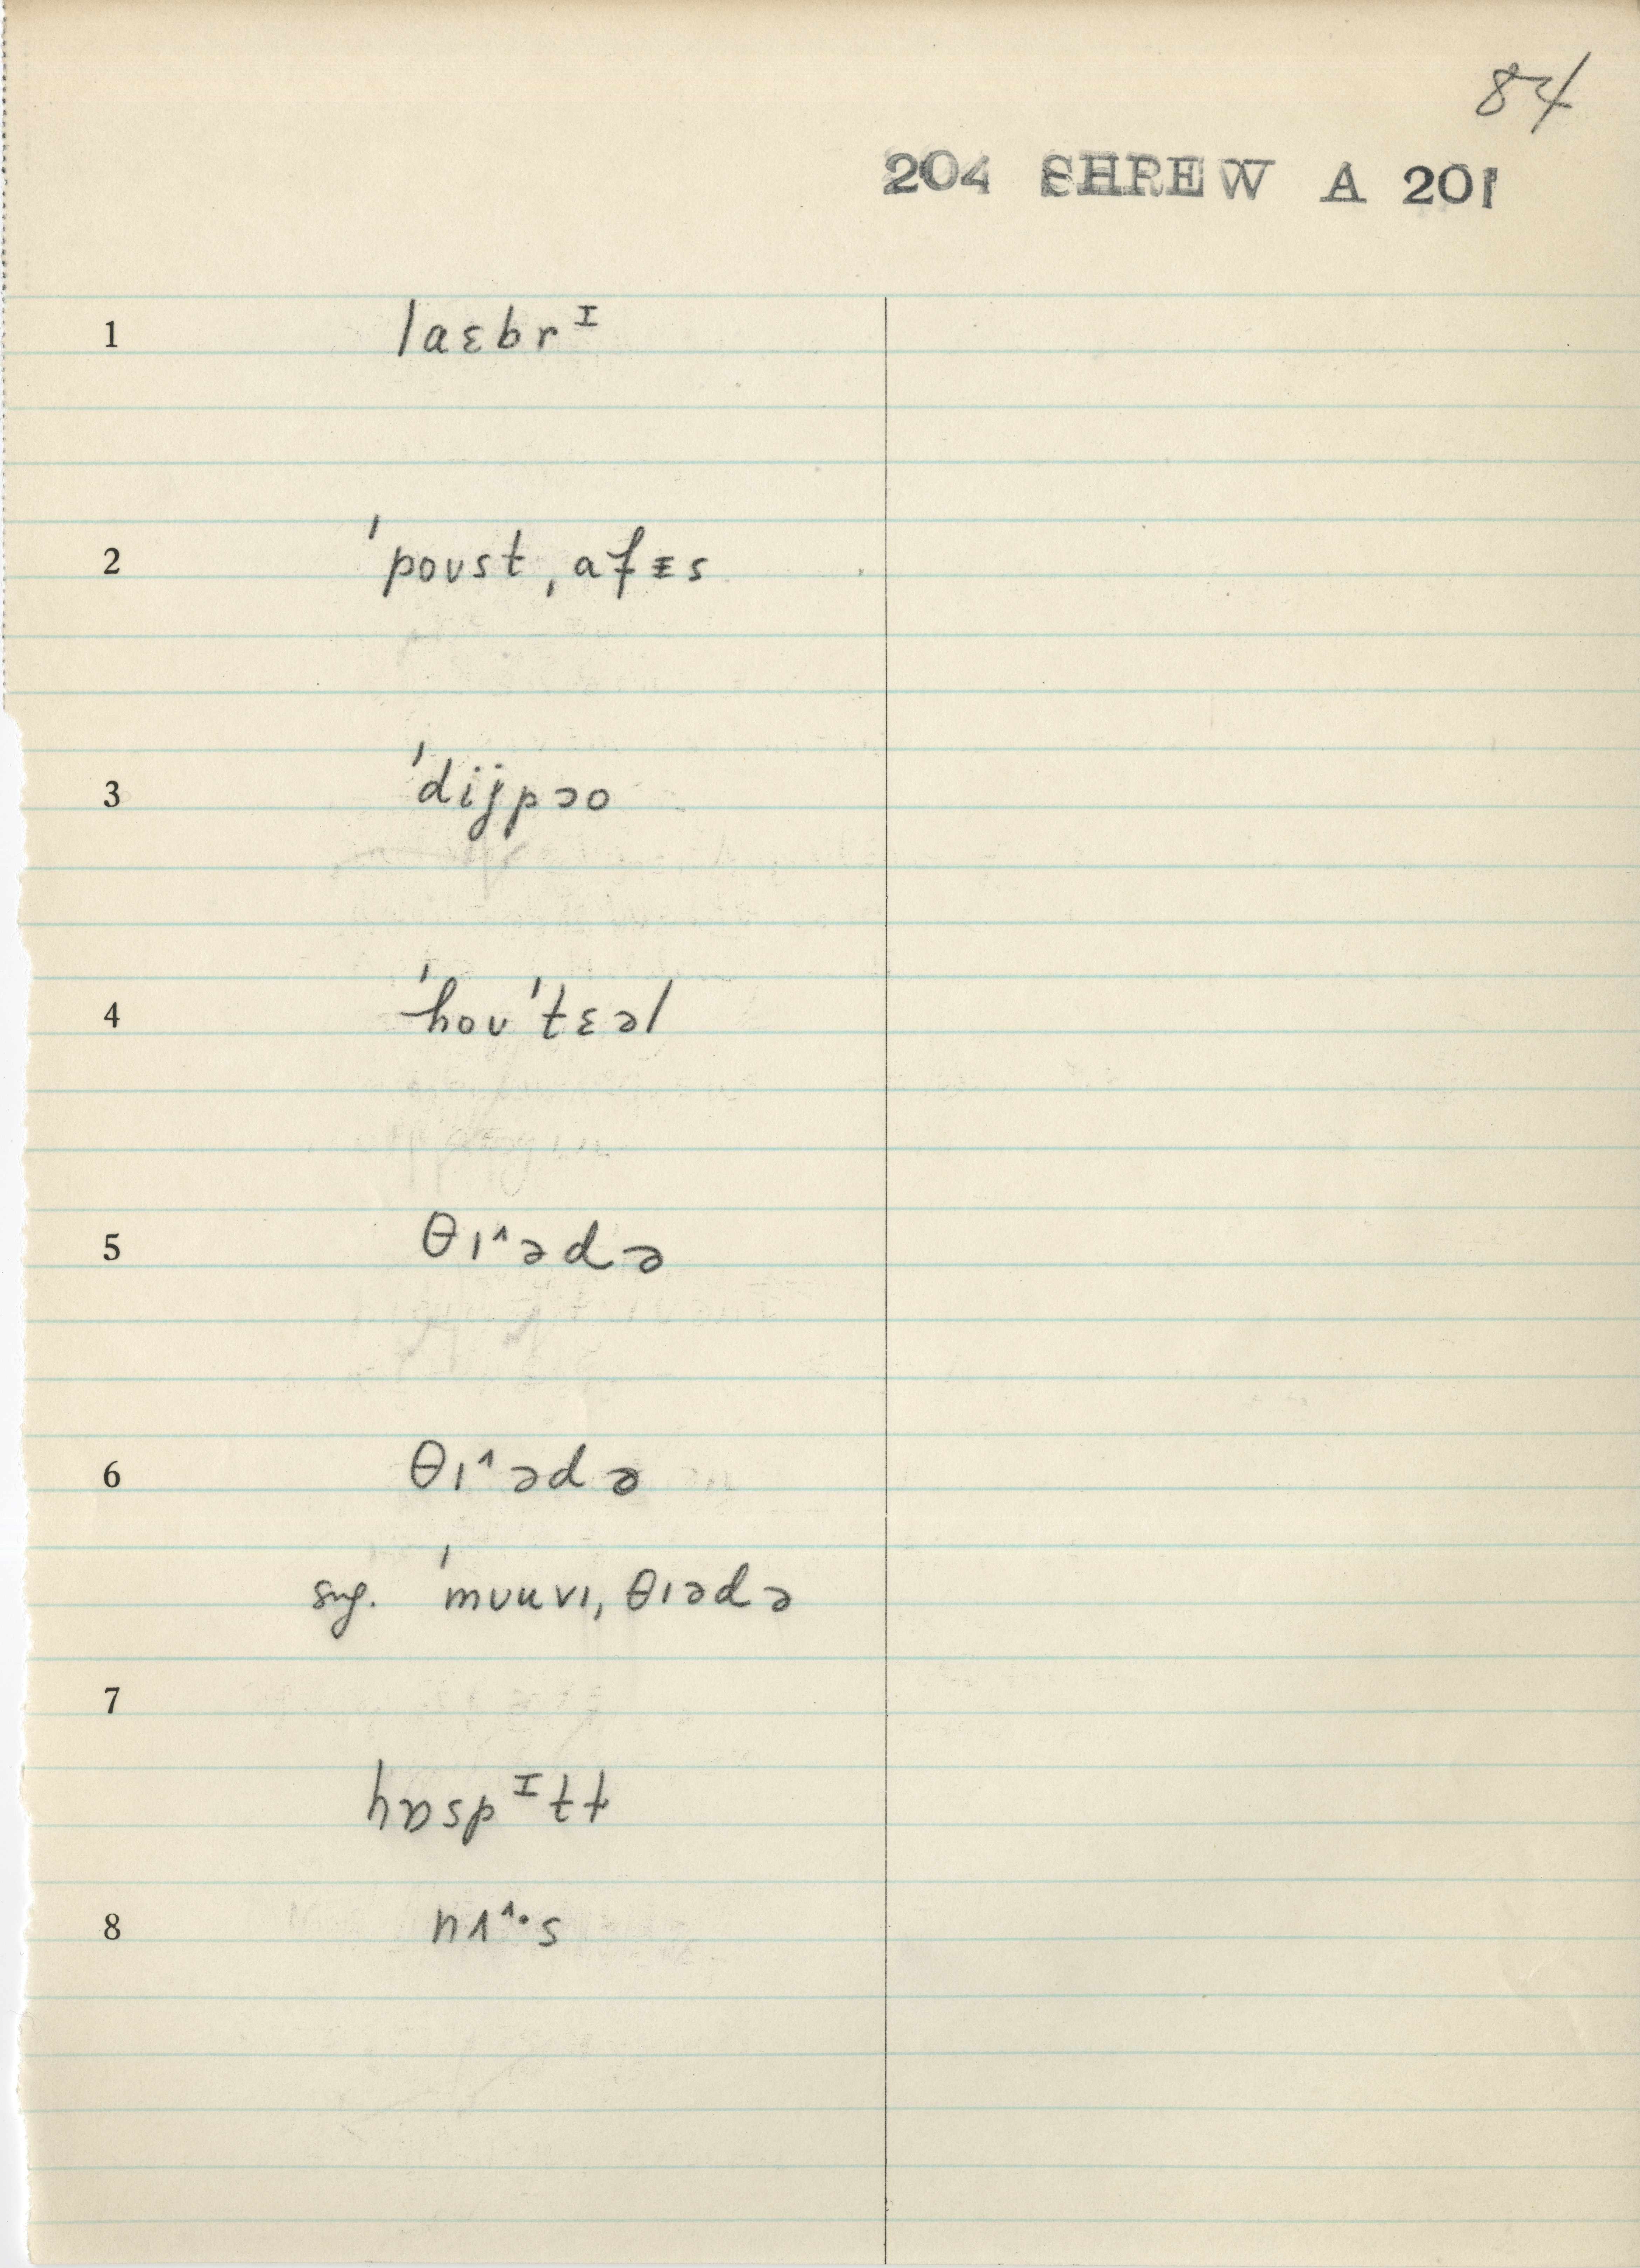 84
204 SHREW A 201
1 laɛbrᴵ
2 ˈpoust, afᵻs
3 ˈdijpɔo
4 ˈhoʊˈtɛəl
5 θɪ˄ədə
6 θɪ˄ədə
sug. ˈmʊuvɪ, θɪədə
7
hɒspᴵtt
8 nʌ˄·s